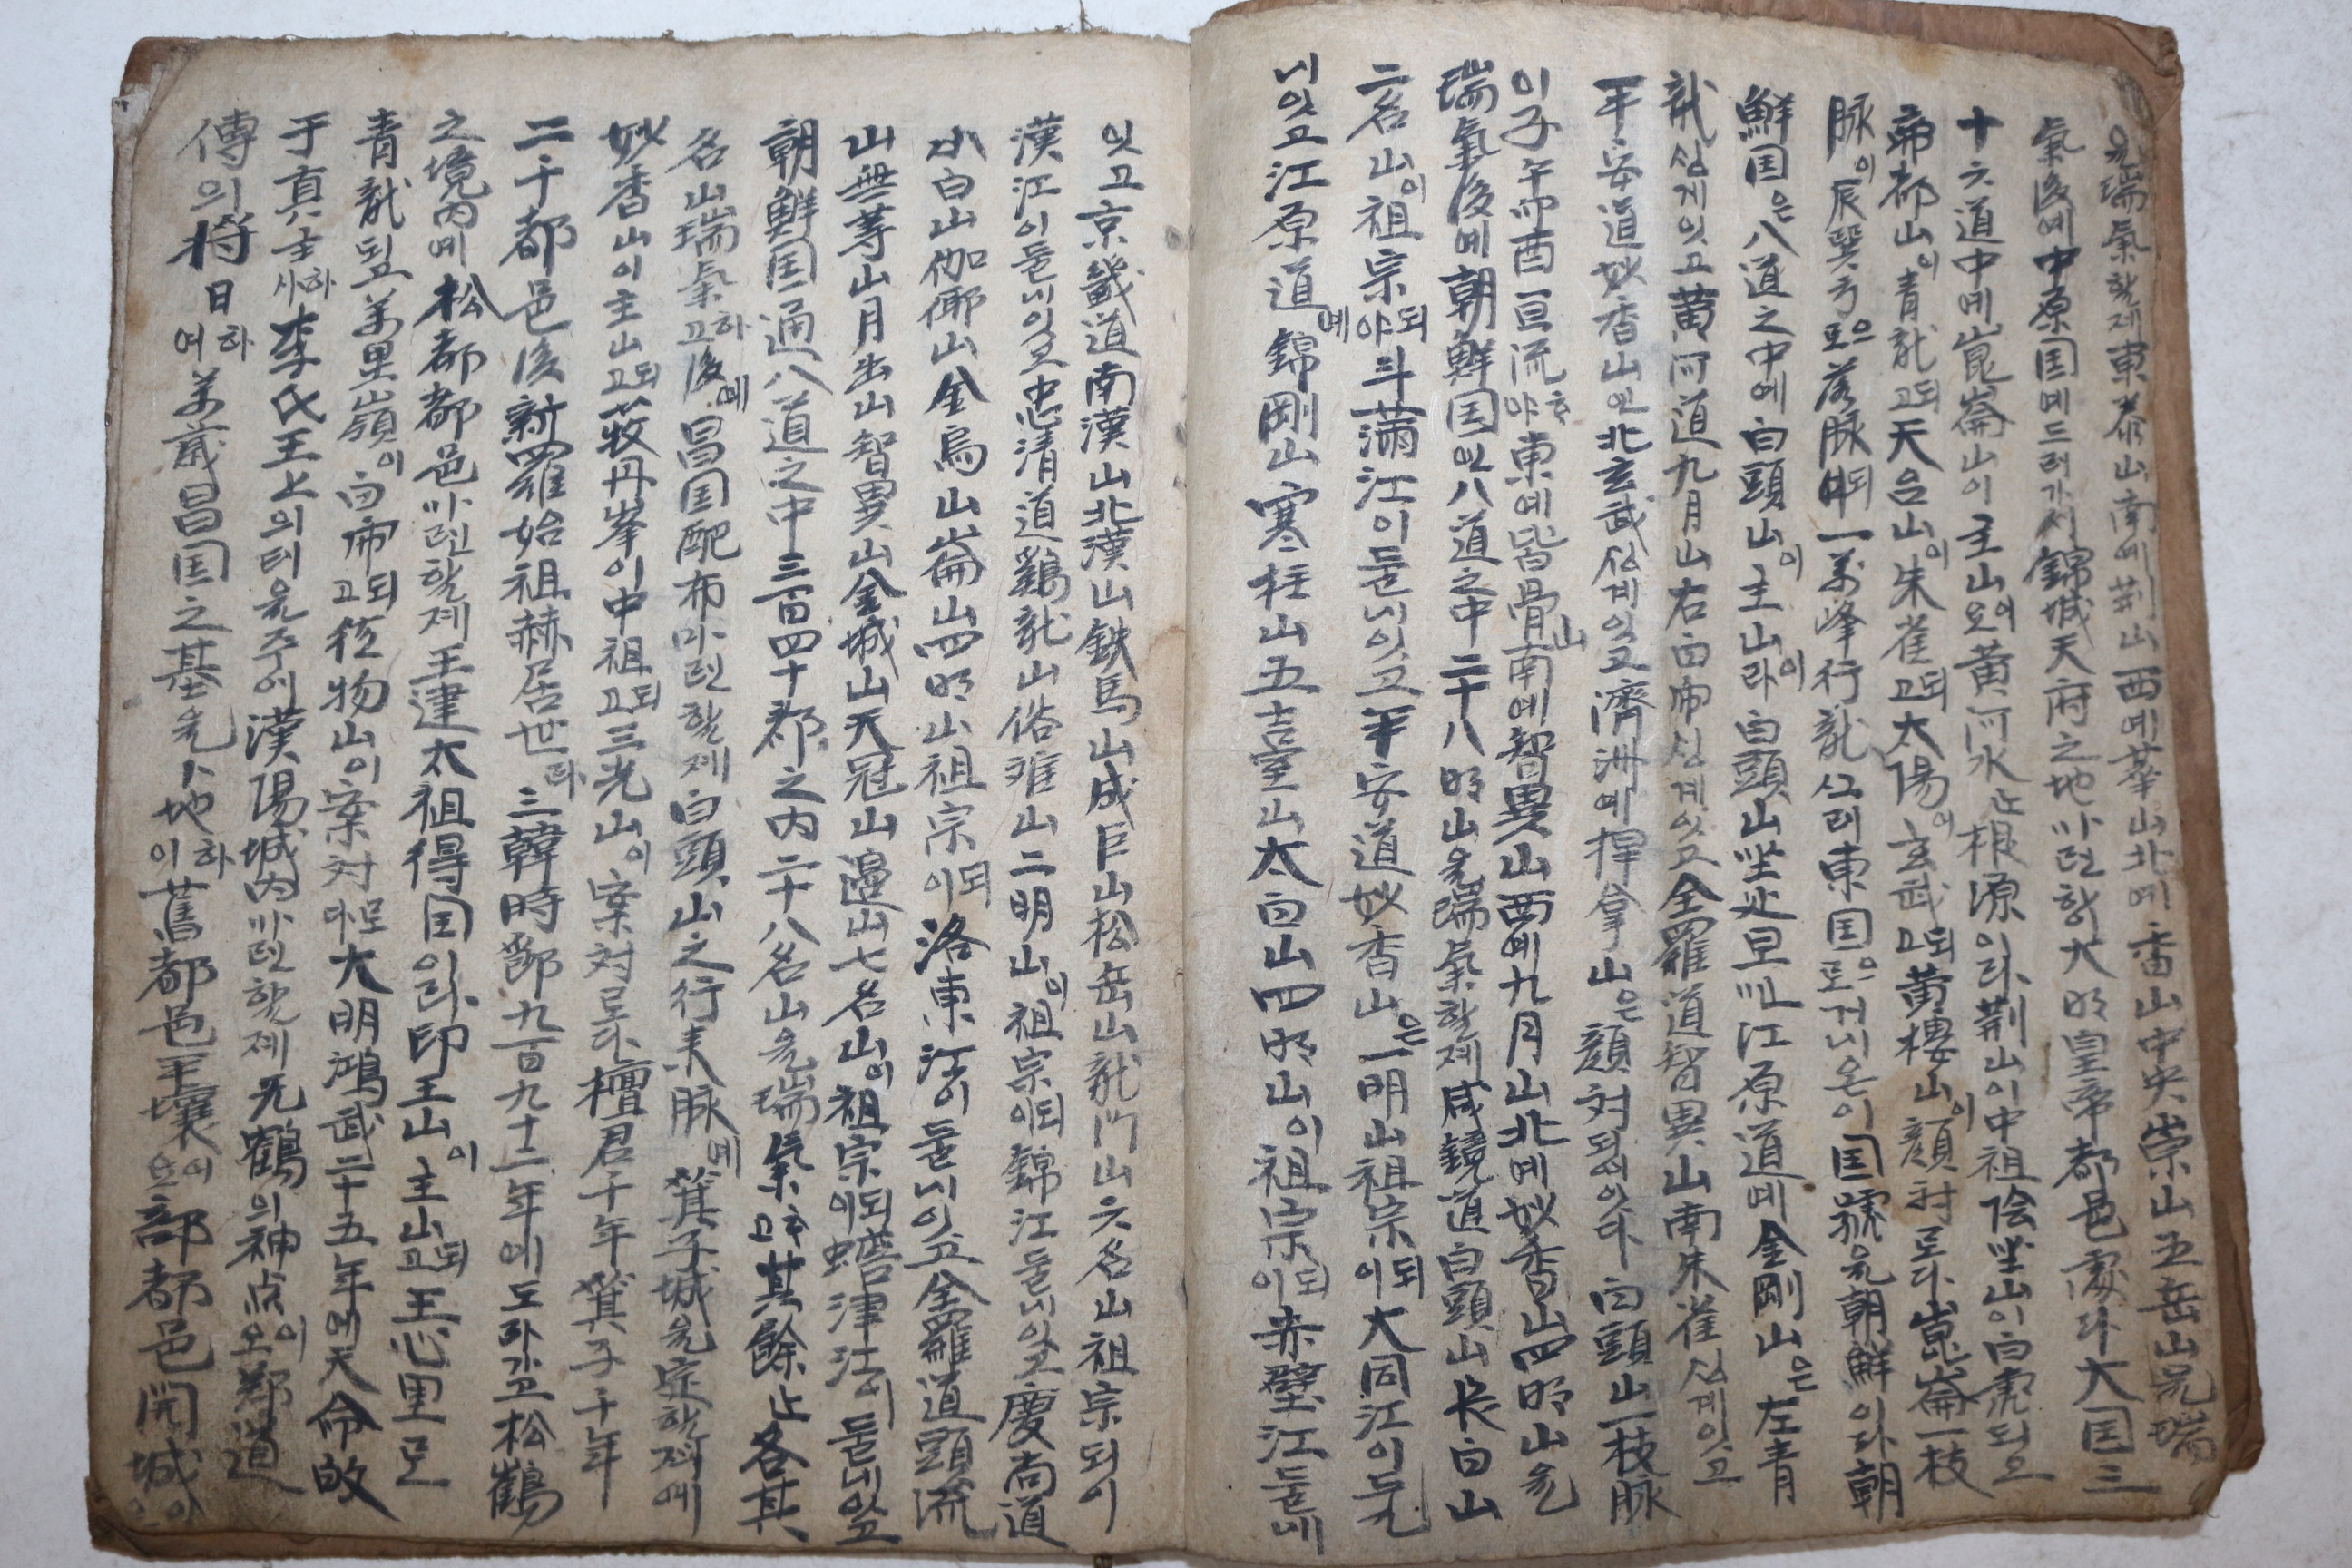 을瑞氣할제東泰山南에荊山西에華山北에香山中央崇山五岳山을瑞
氣後에中原国에드러가서錦城天府之地마련할大明皇帝都邑處라大国三
十六道中에崑崙山이主山이요黃河水止根源이라荊山이中祖陰坐山이白虎되요
帝都山이青龍되고天台山이朱雀되고太陽이玄武되고黃樓山이顔対로다崑崙一枝
脉이辰巽方으로落脉되一萬峰行龍시러東国으로거니온이国號을朝鮮이라朝
鮮国은八道之中에白頭山이主山이라白頭山坐處로江原道에金剛山은左青
龍싱게잇고黃河道九月山右白帍싱계잇고全羅道智異山南朱雀싱계잇고
平安道妙香山은北玄武싱계잇고濟洲에桿拿山은顔対되야잇다白頭山一枝脉
이子午卯酉一旦流하야東에皆骨山南에智異山西에九月山北에妙香山四明山을
瑞氣後에朝鮮国은八道之中二十八明山을瑞氣할제咸鏡道白頭山长白山
二名山이祖宗되야斗滿江이둘너잇고平安道妙香山은一明山祖宗이되大同江이둘
너잇고江原道에錦剛山寒柱山五臺山太白山四明山이祖宗이되赤壁江둘너
잇고京畿道南漢山北漢山鉄馬山成巨山松岳山龍门山六名山祖宗되이
漢江이둘너잇고忠清道鷄龍山俗难山二明山이祖宗이되錦江둘너잇고慶尚道
小白山伽倻山金烏山崙山四明山祖宗이되洛東江이둘너잇고全羅道頭流
山無等山月出山智異山金城山天冠山邉山七名山이祖宗이되蟾津江이둘너잇고
朝鮮国通八道之中三百四十郡之内二十八名山을瑞氣하고其餘止各其
名山瑞氣하고後에昌国配布마련할제白頭山之行来脉에箕子城을定할제에
妙香山이主山되고牧丹峯이中祖되고三光山이案対로다檀君千年箕子千年
二千都邑後新羅始祖赫居世라三韓時節九百九十二年에도라가고松鶴
之境內에松都都邑마련할제王建太祖得国이라印王山이主山되고王心里로
青龍되고萬里嶺이白帍되고從物山이案対라도大明鴻武二十五年에天命啟
于真主하사李氏王上의터을주에漢陽城內마련할제无鶴의神占이오鄭道
傳의將日하여萬歲昌国之基을卜地하이舊都邑平壤이요部都邑開城이